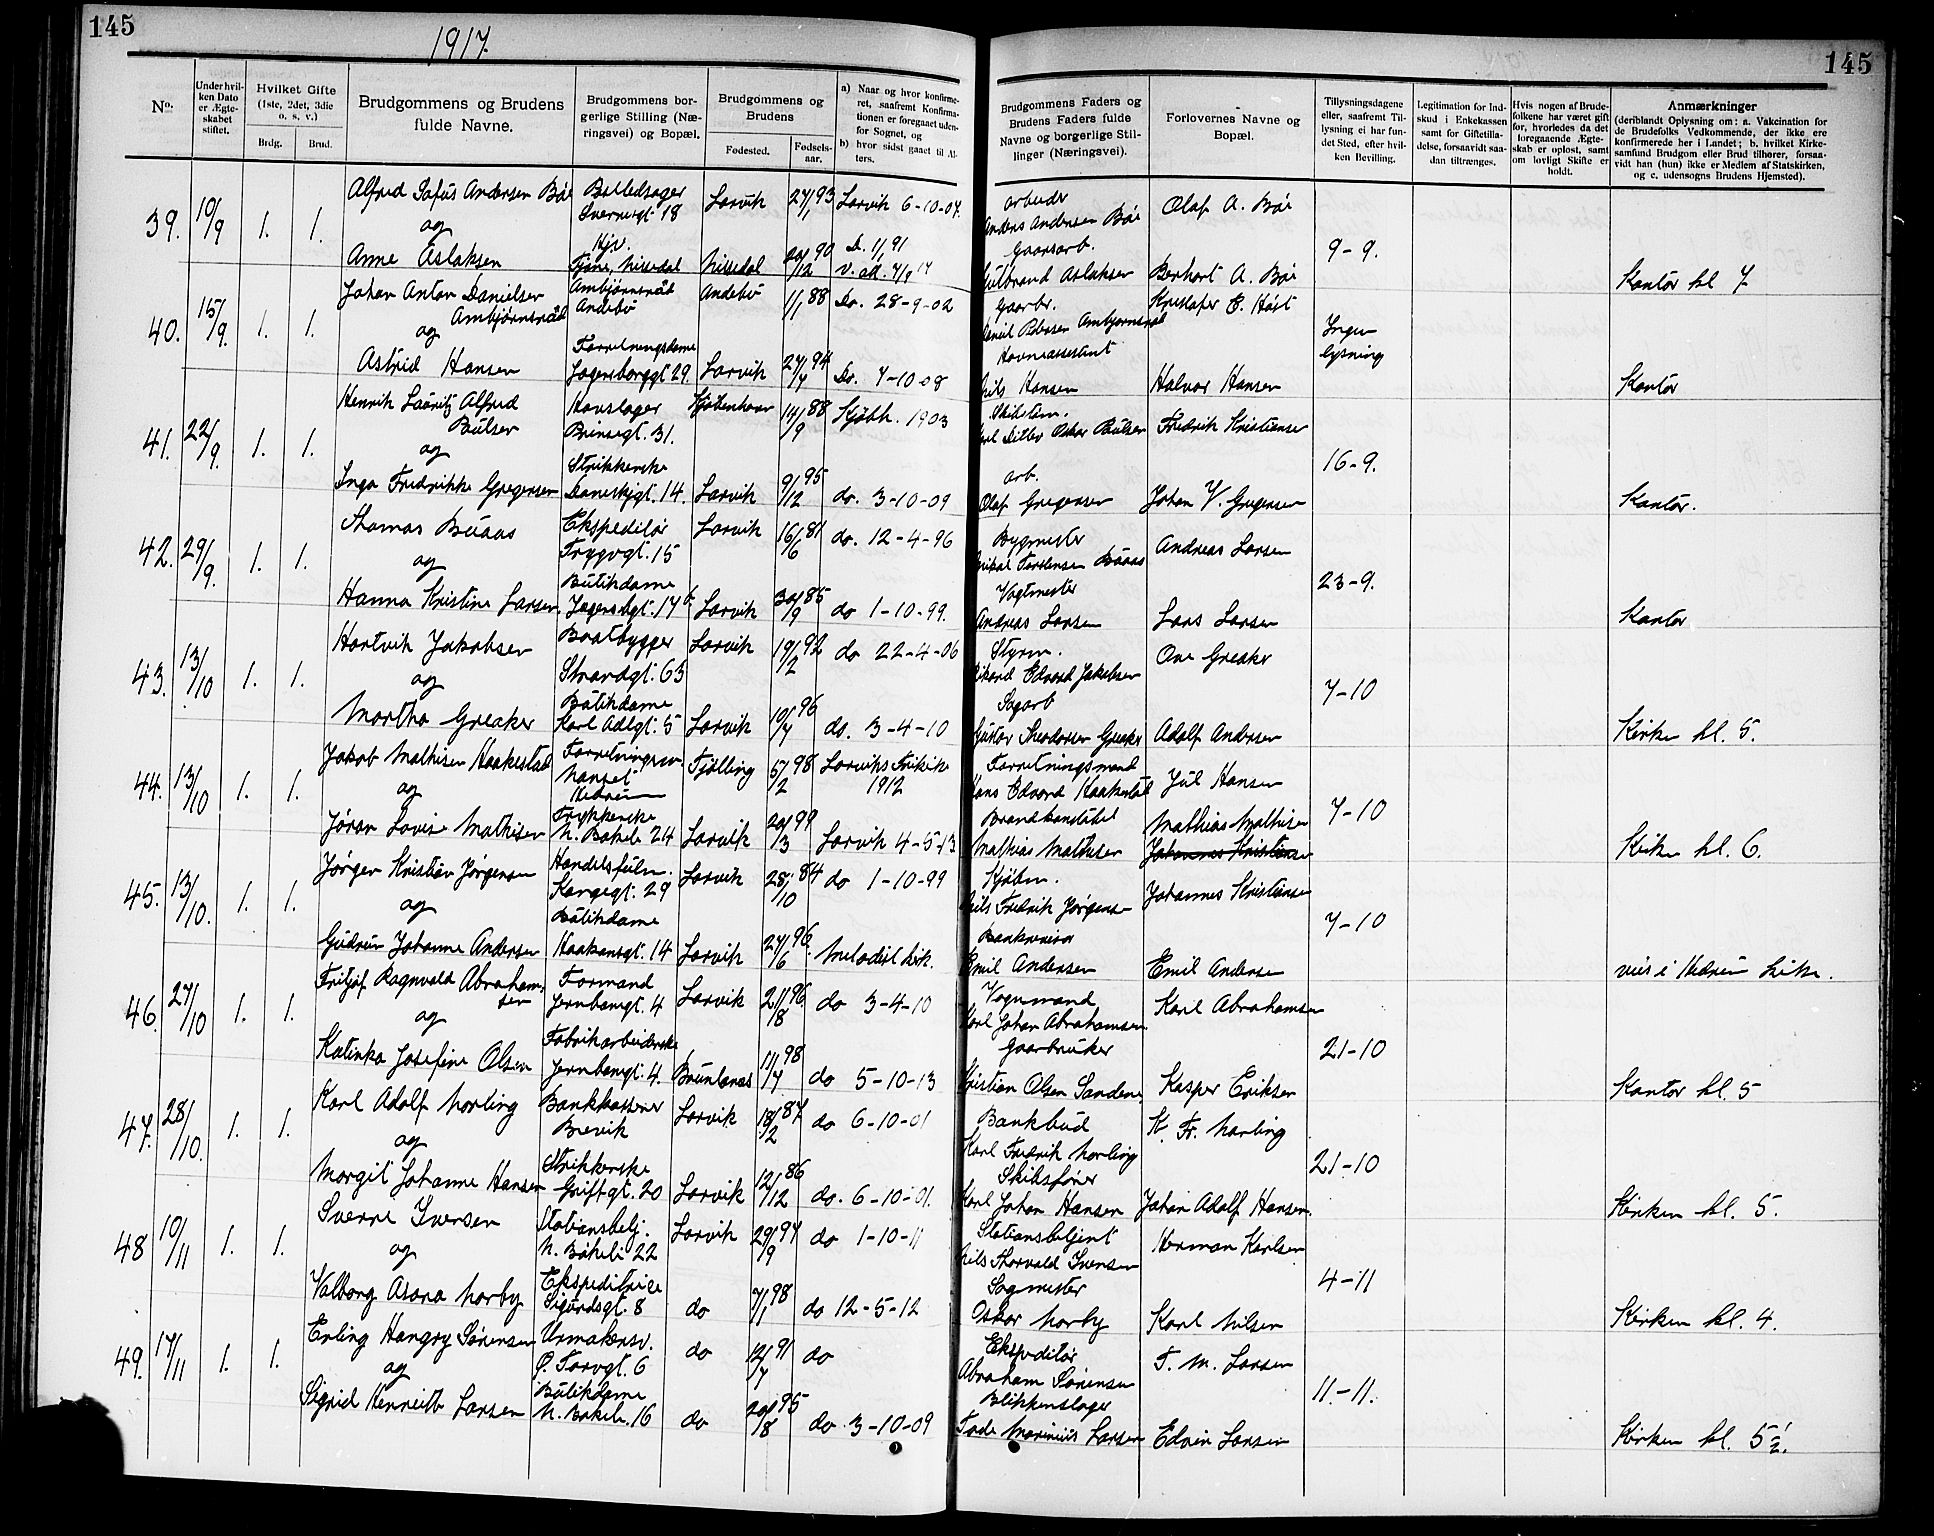 145
1917.
145
No.
Under hvilken Dato er Ægteskabet stiftet.
Hvilket Gifte (1ste, 2det, 3die o. s. v.)
Brdg.
Brud.
Brudgommens og Brudens fulde Navne.
Brudgommens borgerlige Stilling (Næringsvei) og Bopæl.
Brudgommens og Brudens
Fødested.
Fødselsaar.
a) Naar og hvor konfirmeret, saafremt Konfirmationen er foregaaet udenfor Sognet, og
b) hvor sidst gaaet til Alters.
Brudgommens Faders og Brudens Faders fulde Navne og borgerlige Stillinger (Næringsvei).
Forlovernes Navne og Bopæl.
Tillysningsdagene eller, saafremt Tillysning ei har fundet Sted, efter hvilken Bevilling.
Legitimation for Indskud i Enkekassen samt for Giftetilladelse, forsaavidt saadan tiltrænges.
Hvis nogen af Brudefolkene har været gift før, hvorledes da det foregaaende Ægteskab er opløst, samt om lovligt Skifte er holdt.
Anmærkninger
(deriblandt Oplysning om: a. Vakcination for de Brudefolks Vedkommende, der ikke ere konfirmerede her i Landet; b. hvilket Kirkesamfund Brudgom eller Brud tilhører, forsaavidt han (hun) ikke er Medlem af Statskirken, og c. udensogns Brudens Hjemsted).
39. 10/9 1. 1. Alfred Sofus Andersen Bøe
og
Anne Aslaksen
18
Hjv.
Nissedal
Larvik 27/1 93 Larvik 6-10-07.
Nissedal 20/12 90 D. 1/1 91
arbeider
Anders Andersen Bøe
Gaardarb.
Gulbrand Aslaksen
Olaf A. Bøe
Berhart A. Bøe
9-9.
Kontor kl 7
40. 15/9. 1. 1. Johan Anton Danielsen
Ambjørnsrød
og
Astrid Hansen
Ambjørnsrød
Andebu
Forretningsdame
Jegersborggt 29.
Andebu 11/1 88 Do. 28-9-02
Larvik 27/7 94 Do. 4-10-08
Gaarbr.
Daniel Pedersen Ambjørnsrød
Havneassistent
Nils Hansen
Kristofer E. Høst
Halvor Hansen
Ingen
lysning
Kontor
41. 22/9. 1. 1. Henrik Lauritz Alfred
Poulsen
og
Inga Fredrikke Gregersen
Hovslager
31.
Strikkerske
Daneskjgt. 14.
Kjøbenhavn 14/9 88 Kjøbh. 1903
Larvik 9/12 95 do. 3-10-09
Karl Ditlev Oskar Poulsen
arb.
Olaf Gregersen
Fredrik Kristiansen
Johan V. Gregersen
16-9.
Kontor.
42. 29/9. 1. 1. Thomas Buaas
og
Hanna Kristine Larsen
Ekspeditør
Tryggvgt. 15
Butikdame
Jegersbgt. 17 b.
Larvik 16/6 81 do. 12-4-96
Larvik 30/9 85 do 1-10-99.
Bygmester
Buaas
Vagtmester
Andreas Larsen
Andreas Larsen
Lars Larsen
23-9.
Kontor
43. 13/10 1. 1. Hartvik Jakobsen
og
Martha Greaker
Baatbygger
Strandgt. 63
Butikdame
Karl Adlgt. 5
Larvik 19/2 92 do 22-4-06
Larvik 10/7 96 do. 3-4-10
Styrm.
Rikard Edvard Jakobsen
Sagarb
Gustav Theodorsen Greaker
Ove Greaker
Adolf Andersen
7-10
Kirken kl. 5.
44. 13/10 1. 1. Jakob Mathisen Haakestad
og
Jøran Lovise Mathisen
Nanset
Hedrum
Trykkerske
N. Bøkeli 24
Tjølling 5/2 98 Larviks Frikirke
1912
Larvik 20/3 99 Larvik 4-5-13
Forretningsmand
Hans Edvard Haakestad
Brandkonstabel
Mathias Mathisen
Jul Hansen
Mathias Mathisen
Johannes Kristiansen
7-10
Kirken kl. 6.
45. 13/10. 1. 1. Jørgen Kristian Jørgensen
og
Gudrun Johanne Andersen
Handelsfulm.
29
Butikdame
Haakonsgt. 14
Larvik 28/10 84 do 1-10-99
Larvik 27/6 96. Metodist kirk.
Kjøbm.
Nils Fredrik Jørgensen
Bankrevisor
Emil Andersen
Johannes Kristiansen
Emil Andersen
7-10
viet i Hedrum kirke.
46. 27/10 1. 1. Fritjof Ragnvald Abraham-
sen
og
Katinka Josefine Olsen
Formand
Jernbanegt. 4
Fabrikarbeiderske
Jernbanegt. 4.
Larvik 21/8 96. do 3-4-10
Brunlanes 11/7 98 do 5-10-13
Vognmand
Karl Johan Abrahamsen
Gaarbruker
Kristian Olsen Sandene
Karl Abrahamsen
Kasper Eriksen
21-10
Kontor kl. 5
47. 28/10. 1. 1. Karl Adolf Norling
og
Margit Johanne Hansen
Bankkasserer
Brevik
Strikkerske
Griftgt. 20
Larvik 18/2 87 do 6-10-01
Larvik 12/12 86 do. 6-10-01.
Bankbud
Karl Fredrik Norling
Skibsfører
Karl Johan Hansen
K. Fr. Norling
Johan Adolf Hansen.
21-10
Kirken kl. 5.
48 10/11 1. 1. Sverre Iversen
og
Valborg Asora Norby
Stationsbetj.
N. Bøkeli 22
Ekspeditrice
Sigurdsgt. 8
Larvik 29/9 94 do 1-10-11
do 7/1 98 do 12-5-12
Stationsbetjent
Nils Thorvald Iversen
Sagmester
Oskar Norby
Herman Karlsen
Karl Nilsen
4-11
Kirken kl. 4.
49. 17/11 1. 1. Erling Hangry Sørensen
og
Sigrid Henriette Larsen
Urmakersv.
Ø. Torvgt. 6
Butikdame
N. Bøkeli. 16
do 12/7 91 do
do 20/8 95 do 3-10-09
Ekspeditør
Abraham Sørensen
Blikkenslager
Tode Marinius Larsen
T. M. Larsen
Edvin Larsen
11-11.
Kirken kl. 5 1/2.